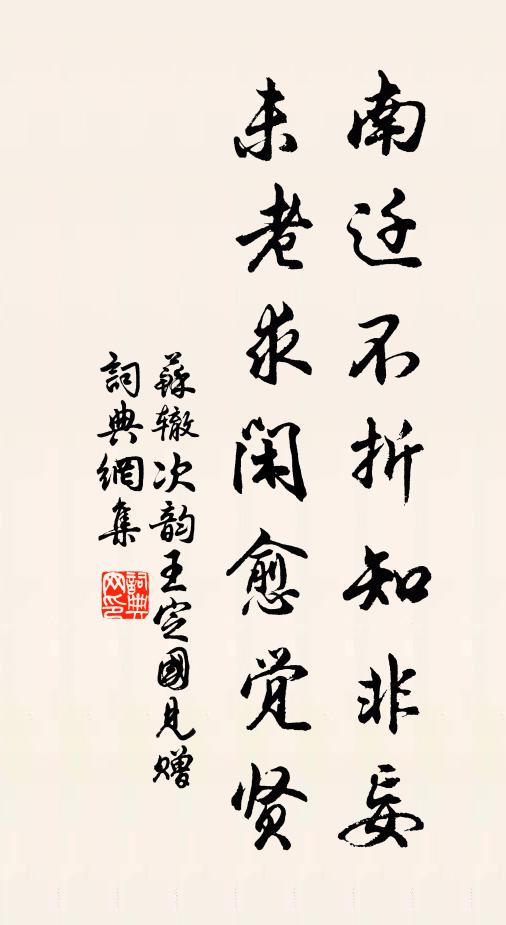 南迁不折知非妄
未老求闲愈觉贤
蘇辙次韵王定國見赠
詞典網集
詞典网印